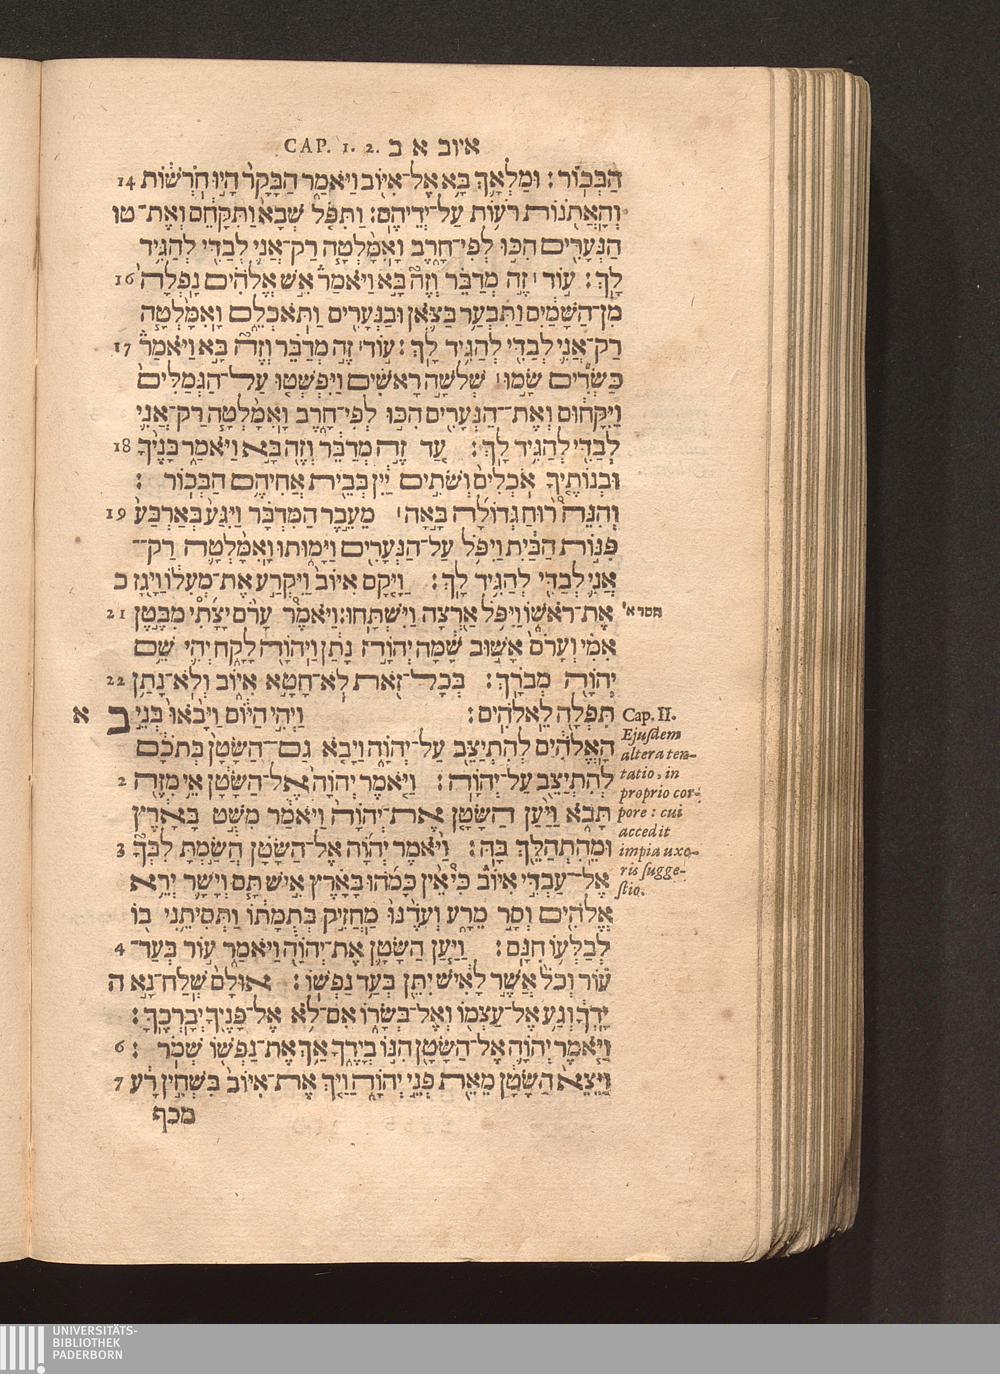 CAP. 1. 2. איוב א ב
הַבְּכוֹר׃ וּמַלְאָךְ בָּא אֶל־אִיּוֹב וַיֹּאמַר הַבָּקָר הָיוּ חֹרְשׁוֹת 14
וְהָאֲתֹנוֹת רֹעוֹת עַל־יְדֵיהֶם׃ וַתִּפֹּל שְׁבָא וַתִּקָּחֵם וְאֶת־ טו
הַנְּעָרִים הִכּוּ לְפִי־חָרֶב וָאִמָּלְטָה רַק־אֲנִי לְבַדִּי לְהַגִּיד
לָךְ׃ עוֹד ׀ זֶה מְדַבֵּר וְזֶה בָּא וַיֹּאמַר אֵשׁ אֱלֹהִים נָפְלָה 16
מִן־הַשָּׁמַיִם וַתִּבְעַר בַּצֹּאן וּבַנְּעָרִים וַתֹּאכְלֵם וָאִמָּלְטָה
רַק־אֲנִי לְבַדִּי לְהַגִּיד לָךְ׃ עוֹד ׀ זֶה מְדַבֵּר וְזֶה בָּא וַיֹּאמַר 17
כַּשְׂדִּים שָׂמוּ ׀ שְׁלֹשָׁה רָאשִׁים וַיִּפְשְׁטוּ עַל־הַגְּמַלִּים
וַיִּקָּחוּם וְאֶת־הַנְּעָרִים הִכּוּ לְפִי־חָרֶב וָאִמָּלְטָה רַק־אֲנִי
לְבַדִּי לְהַגִּיד לָךְ׃ עַד זֶה מְדַבֵּר וְזֶה בָּא וַיֹּאמַר בָּנֶיךָ 18
וּבְנוֹתֶיךָ אֹכְלִים וְשֹׁתִים יַיִן בְּבֵית אֲחִיהֶם הַבְּכוֹר׃
וְהִנֵּה רוּחַ גְּדוֹלָה בָּאָה ׀ מֵעֵבֶר הַמִּדְבָּר וַיִּגַּע בְּאַרְבַּע 19
פִּנּוֹת הַבַּיִת וַיִּפֹּל עַל־הַנְּעָרִים וַיָּמוּתוּ וָאִמָּלְטָה רַק־
אֲנִי לְבַדִּי לְהַגִּיד לָךְ׃ וַיָּקָם אִיּוֹב וַיִּקְרַע אֶת־מְעִלוֹ וַיָּגָז כ
אֶת־רֹאשׁוֹ וַיִּפֹּל אַרְצָה וַיִּשְׁתָּחוּ׃ וַיֹּאמֶר עָרֹם יָצָתִי מִבֶּטֶן 21
חסר א'
אִמִּי וְעָרֹם אָשׁוּב שָׁמָּה יְהוָֹה נָתַן וַיהוָֹה לָקָח יְהִי שֵׁם
יְהוָֹה מְבֹרָךְ׃ בְּכָל־זֹאת לֹא־חָטָא אִיּוֹב וְלֹא־נָתַן 22
תִּפְלָה לֵאלֹהִים׃ וַיְהִי הַיּוֹם וַיָּבֹאוּ בְּנֵי ב א
הָאֱלֹהִים לְהִתְיַצֵּב עַל־יְהוָֹה וַיָּבֹא גַם־הַשָּׂטָן בְּתֹכָם
לְהִתְיַצֵּב עַל־יְהוָֹה׃ וַיֹּאמֶר יְהוָֹה אֶל־הַשָּׂטָן אֵי מִזֶּה 2
תָּבֹא וַיַּעַן הַשָּׂטָן אֶת־יְהוָֹה וַיֹּאמַר מִשֻּׁט בָּאָרֶץ
וּמֵהִתְהַלֵּךְ בָּהּ׃ וַיֹּאמֶר יְהוָֹה אֶל־הַשָּׂטָן הֲשַׂמְתָּ לִבְּךָ 3
אֶל־עַבְדִּי אִיּוֹב כִּי אֵין כָּמֹהוּ בָּאָרֶץ אִישׁ תָּם וְיָשָׁר יְרֵא
אֱלֹהִים וְסָר מֵרָע וְעֹדֶנּוּ מַחֲזִיק בְּתֻמָּתוֹ וַתְּסִיתֵנִי בוֹ
לְבַלְּעוֹ חִנָּם׃ וַיַּעַן הַשָּׂטָן אֶת־יְהוָֹה וַיֹּאמַר עוֹר בְּעַד־ 4
עוֹר וְכֹל אֲשֶׁר לָאִישׁ יִתֵּן בְּעַד נַפְשׁוֹ׃ אוּלָם שְׁלַח־נָא ה
יָדְךָ וְגַע אֶל־עַצְמוֹ וְאֶל־בְּשָׂרוֹ אִם־לֹא אֶל־פָּנֶיךָ יְבָרְכֶךָּ׃
וַיֹּאמֶר יְהוָֹה אֶל־הַשָּׂטָן הִנּוֹ בְיָדֶךָ אַךְ אֶת־נַפְשׁוֹ שְׁמֹר׃ 6
וַיֵּצֵא הַשָּׂטָן מֵאֵת פְּנֵי יְהוָֹה וַיַּךְ אֶת־אִיּוֹב בִּשְׁחִין רָע 7
מכף
Cap. II.
Ejusdem
altera ten-
tatio, in
proprio cor-
pore: cui
accedit
impia uxo-
ris sugge-
stio.
UNIVERSITÄTS-
BIBLIOTHEK
PADERBORN